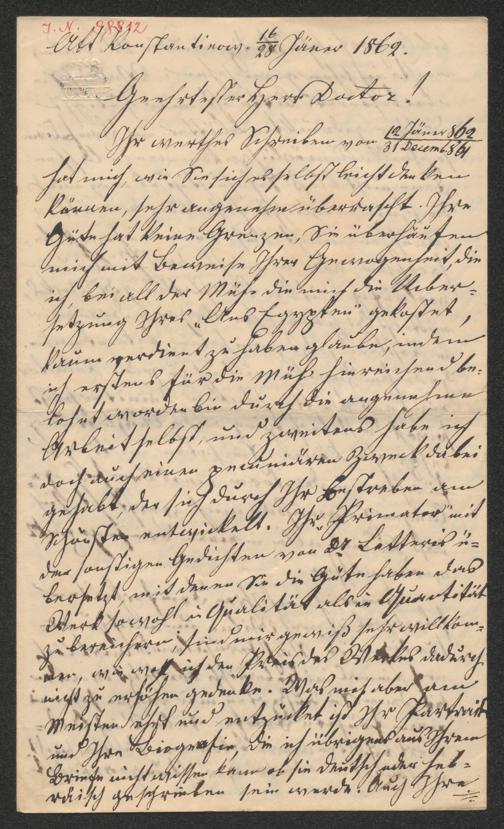 J. N. 98832
Alt Konstantinow. 16/28 Jäner 1862.
Geehrtester Herr Doctor!
Ihr werthes Schreiben von 12 Jäner 862 / 31 Decemb 861
hat mich, wie Sie sich es selbst leicht denken
können, sehr angenehm überrascht. Ihre
Güte hat keine Grenzen, Sie überhäufen
mich mit Beweise Ihrer Gewogenheit, die
ich, bei all der Mühe die mich die Ueber-
setzung Ihres „Aus Egypten" gekostet,
kaum verdient zu haben glaube, indem
ich erstens für die Müh hinreichend be-
lohnt worden bin durch die angenehme
Arbeit selbst, und zweitens habe ich
doch auch einen pecuniären Zweck dabei
gehabt, der sich durch Ihr Bestreben am
Schönsten entwickelt. Ihr „Primator" mit
den sonstigen Gedichten von Dr Letteris ü-
bersetzt, mit denen Sie die Güte haben das
Werk sowohl in Qualität als in Quantität
zu bereichern, sind mir gewiß sehr willkom-
men, wie wohl ich den Preis des Werkes dadurch
nicht zu erhöhen gedenke. Was mich aber am
Meisten ehrt und entzücket ist Ihr Portrait
und Ihre Biografie, die ich übrigens aus Ihrem
Briefe nicht wissen kann ob sie deutsch oder heb-
räisch geschrieben sein werde. Auch Ihre